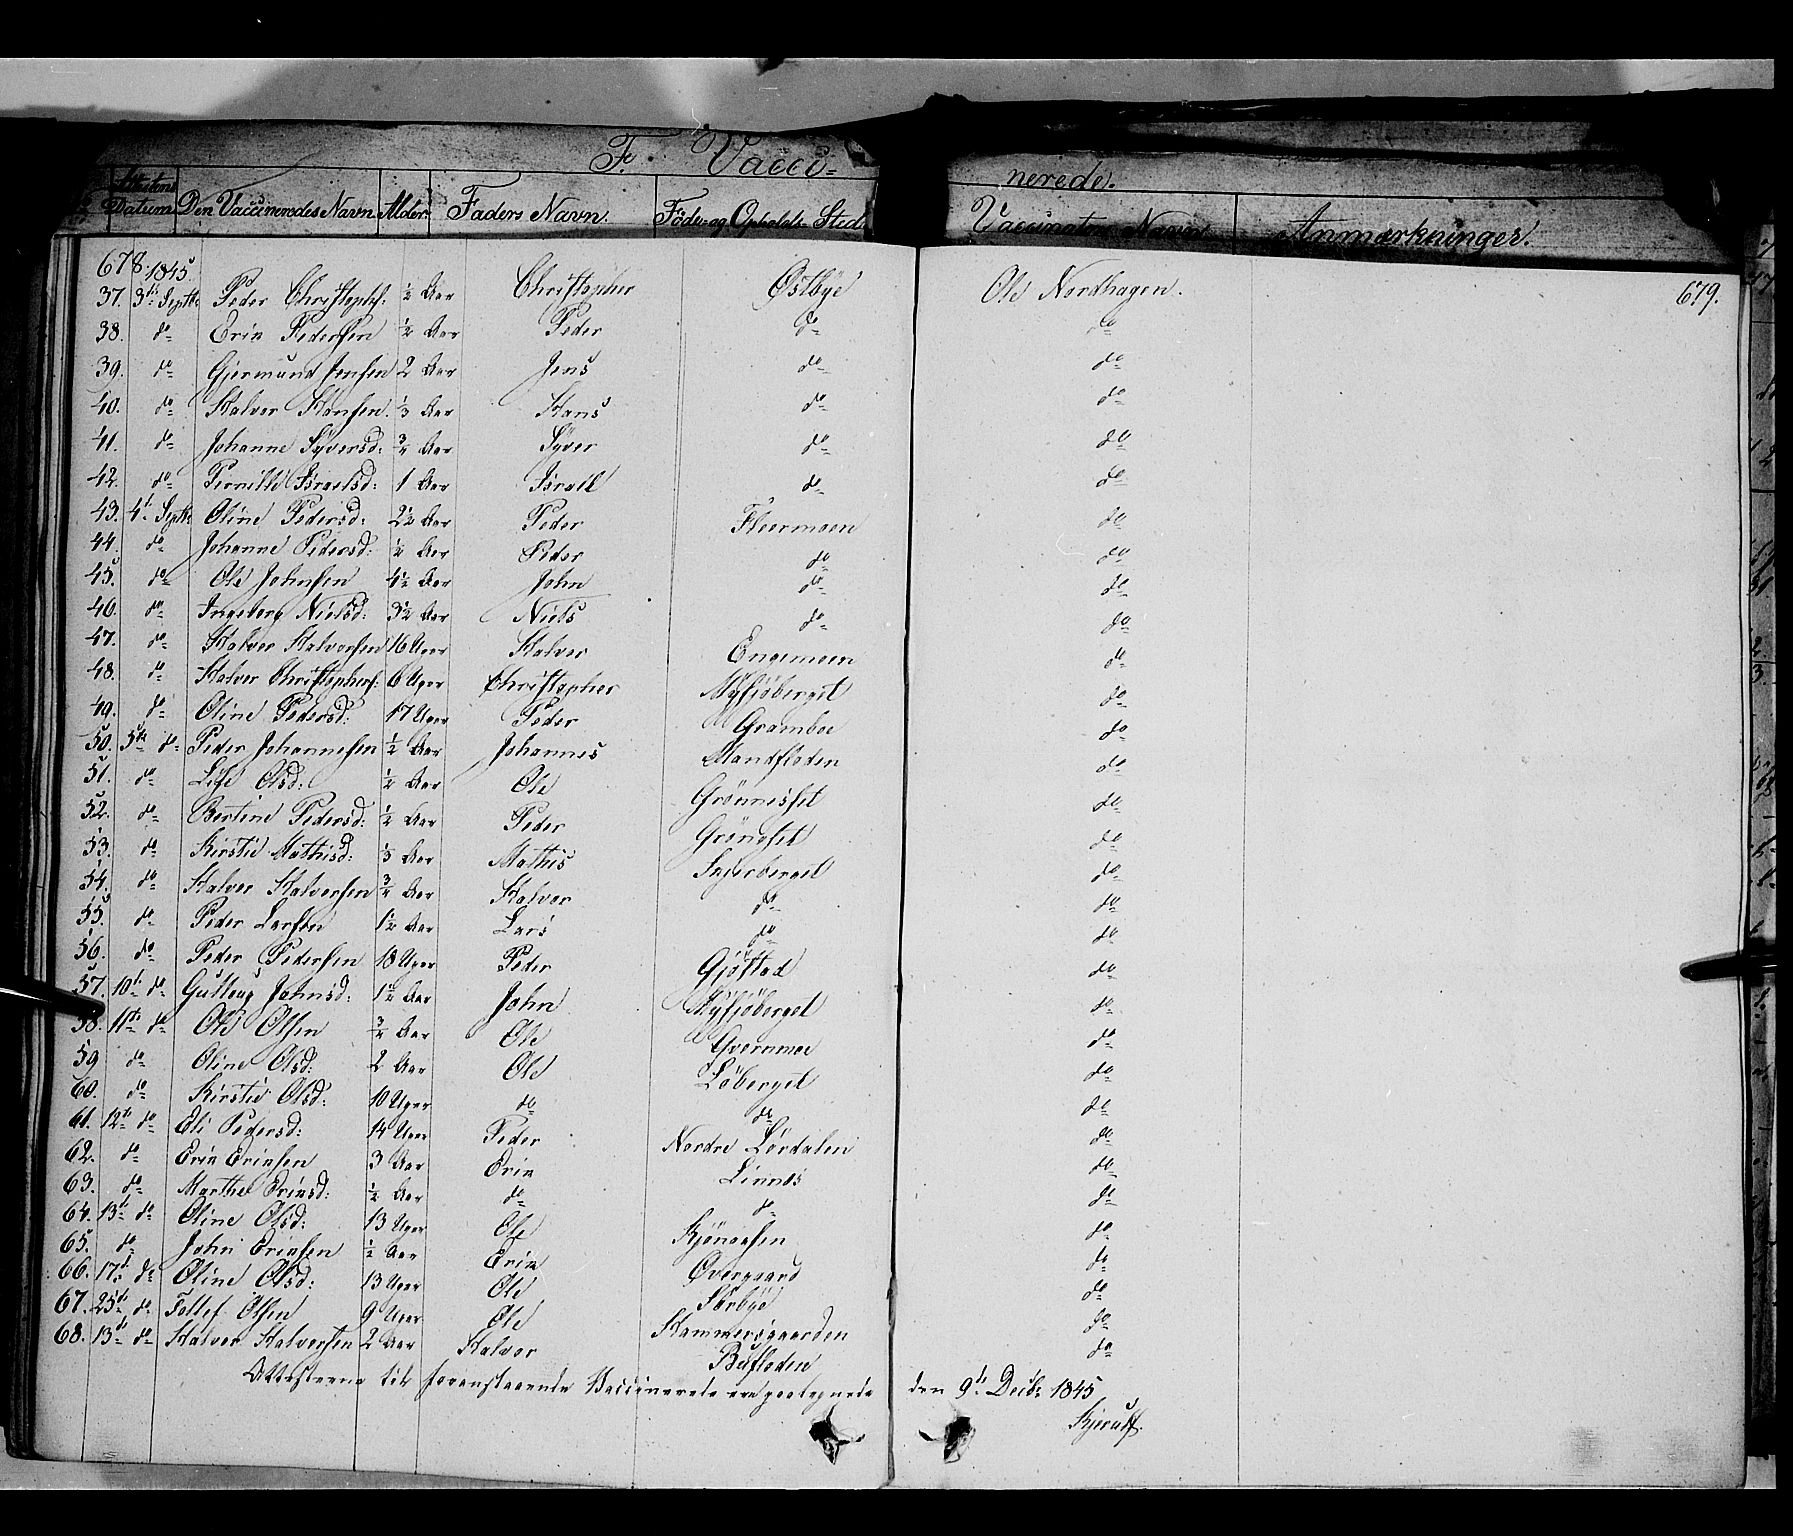 F. Vacci- nerede.
Attestens Datum Den Vaccineredes Navn Alder Faders Navn. Føde- og Opholds-Sted Vaccinators Navn Anmærkninger.
678. 1845 679.
37. 3d Septbr Peder Christophs: ½ Aar Christopher Østbye Ole Nordhagen.
38. do Peder­sen ½ Aar Peder do do
39. do Gjermund Jensen 2 Aar Jens do do
40. do Halvor Hansen. ⅓ Aar Hans do do
41. do Johanne Syversd: ¾ Aar Syver do do
42. do Pernille Israelsd: 1 Aar Israel do do
43. 4d Septbr Oline Pedersd: 2½ Aar Peder Fleermoen do
44. do Johanne Pedersd: ½ Aar Peder do do
45. do Ole Johnsen 4½ Aar John do do
46. do Ingeborg Nielsd: 3½ Aar Niels do do
47. do Halvor Halvorsen 16 Uger Halvor Engemoen do
48. do Halvor Christophers: 6 Uger Christopher Myhjöberget do
49. do Oline Pedersd: 17 Uger Peder Gramboe do
50. 5te do Peder Johannesen ½ Aar Johannes Mandfloden do
51. do Lise Olsd: ½ Aar Ole Grönneset do
52. do Bertine Pedersd: ½ Aar Peder Gröneset do
53. do Kirstie Mathisd: Aar Mathis do
54. do Halvor Halvorsen ¾ Aar Halvor do do
55. do Peder Larsen 1½ Aar Lars do do
56. do Peder Pedersen 18 Uger Peder Gjöstad do
57. 10d do Gulloug Johnsd: 1½ Aar John Myhjöberget do
58. 11te do Ole Olsen ¾ Aar Ole do
59 do Oline Olsd: 2 Aar Ole Löberget do
60. do Kirstie Olsd: 10 Uger do do do
61. 12te do Eli Pedersd: 14 Uger Peder Nordre Lördalen do
62. do 3 Aar Linnes do
63. do Marthe ½ Aar do do do
64. 13d do Oline Olsd: 13 Uger Ole Kjönaasen do
65. do John ½ Aar Övergaard do
66. 17d do Oline Olsd: 13 Uger Ole Sörbye do
67. 25d do Tollef Olsen 9 Uger Ole Hammersgaarden do
68. 13d do Halvor Halvorsen 2 Aar Halvor Bufloden do
Attesterne til foranstaaende Vaccinerede ere paategnede den 9d Decbr 1845
Kjerulf.